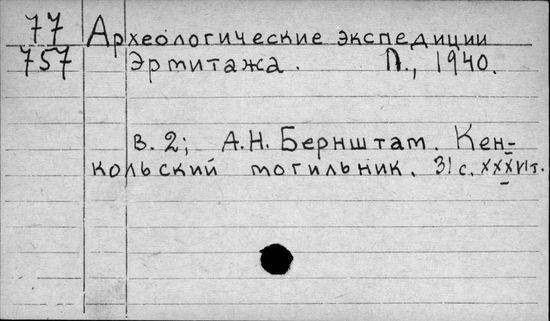 77 Археологические экспедиции
757 Эрмитажа. Л., 1940.
в. 2; А.Н. Бернштам. Кен-
кольский могильник. 31 с. XXXVI т.